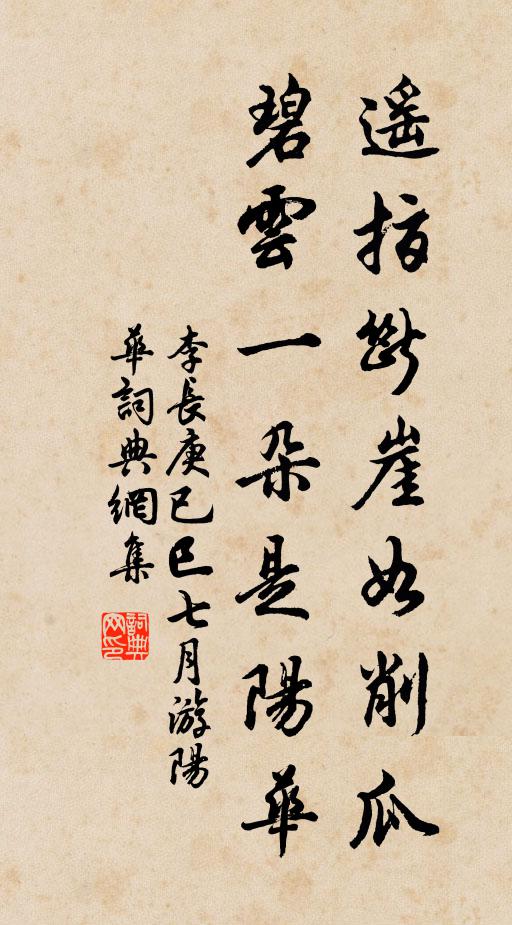 遥指斷崖如削瓜
碧雲一朵是陽華
李長庚己巳七月游陽
華詞典網集
詞典网印